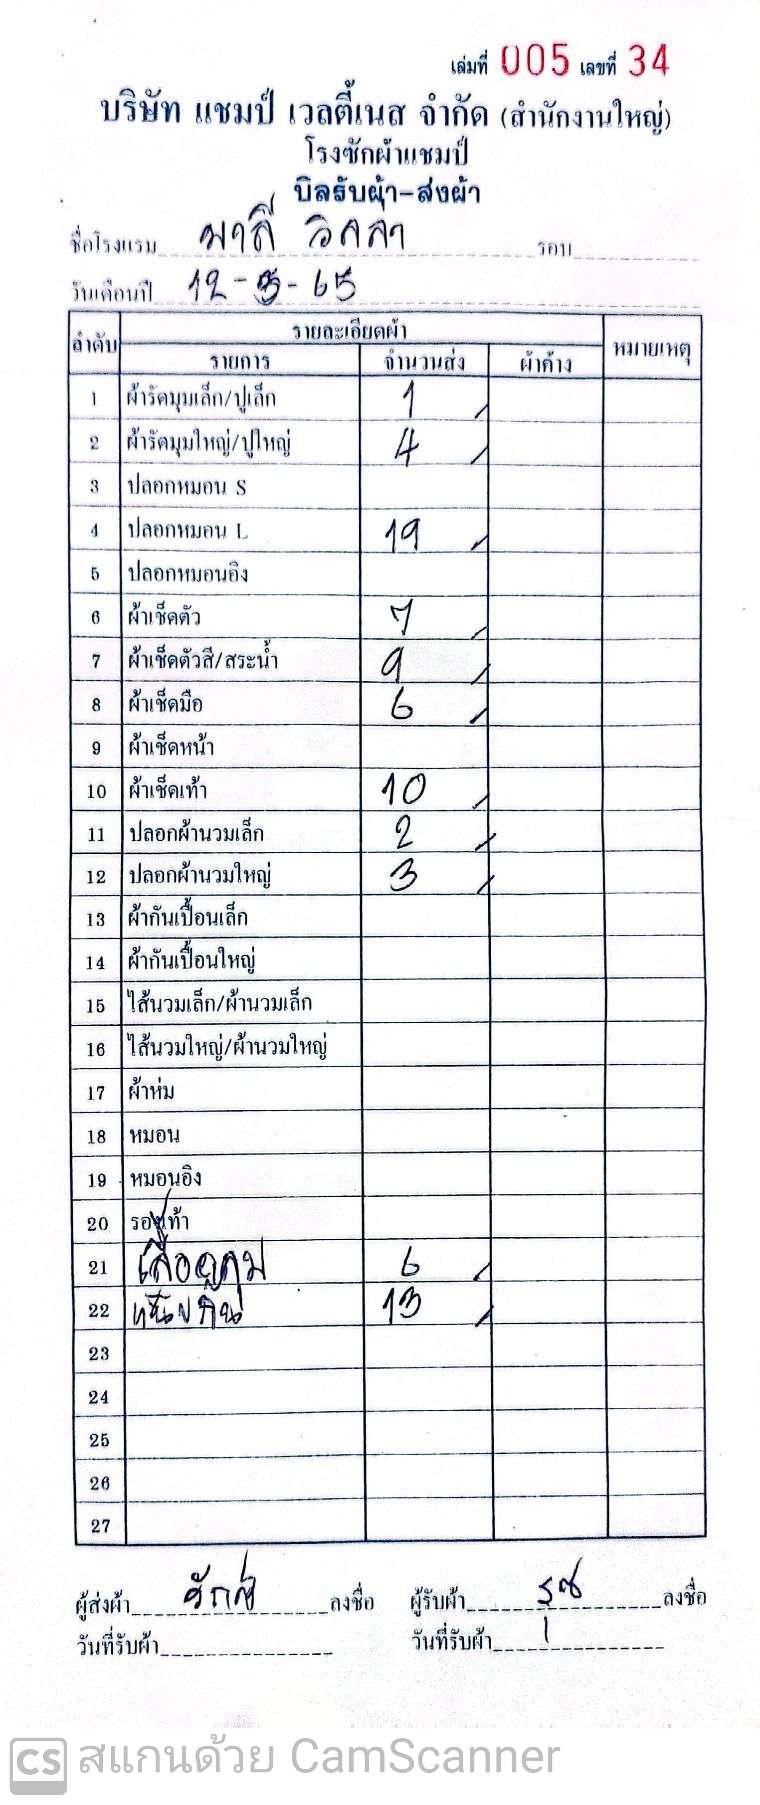 เล่มที่ 005 เลขที่ 34
บริษัท แชมป์ เวลตี้เนส จำกัด (สำนักงานใหญ่)
โรงซักผ้าแชมป์
บิลรับผ้า-ส่งผ้า
ชื่อโรงแรม มาลี วิลล่า รอบ
วันเดือนปี 12-3-65
ลำดับ รายละเอียดผ้า หมายเหตุ
รายการ จำนวนส่ง ผ้าค้าง
1 ผ้ารัดมุมเล็ก/ปูเล็ก 1
2 ผ้ารัดมุมใหญ่/ปูใหญ่ 4
3 ปลอกหมอน S
4 ปลอกหมอน L 19
5 ปลอกหมอนอิง
6 ผ้าเช็ดตัว 7
7 ผ้าเช็ดตัวสี/สระน้ำ 9
8 ผ้าเช็ดมือ 6
9 ผ้าเช็ดหน้า
10 ผ้าเช็ดเท้า 10
11 ปลอกผ้านวมเล็ก 2
12 ปลอกผ้านวมใหญ่ 3
13 ผ้ากันเปื้อนเล็ก
14 ผ้ากันเปื้อนใหญ่
15 ไส้นวมเล็ก/ผ้านวมเล็ก
16 ไส้นวมใหญ่/ผ้านวมใหญ่
17 ผ้าห่ม
18 หมอน
19 หมอนอิง
20 รองเท้า
21 เสื้อคลุม 6
22 13
23
24
25
26
27
ผู้ส่งผ้า ลงชื่อ ผู้รับผ้า ลงชื่อ
วันที่รับผ้า วันที่รับผ้า
CS สแกนด้วย CamScanner